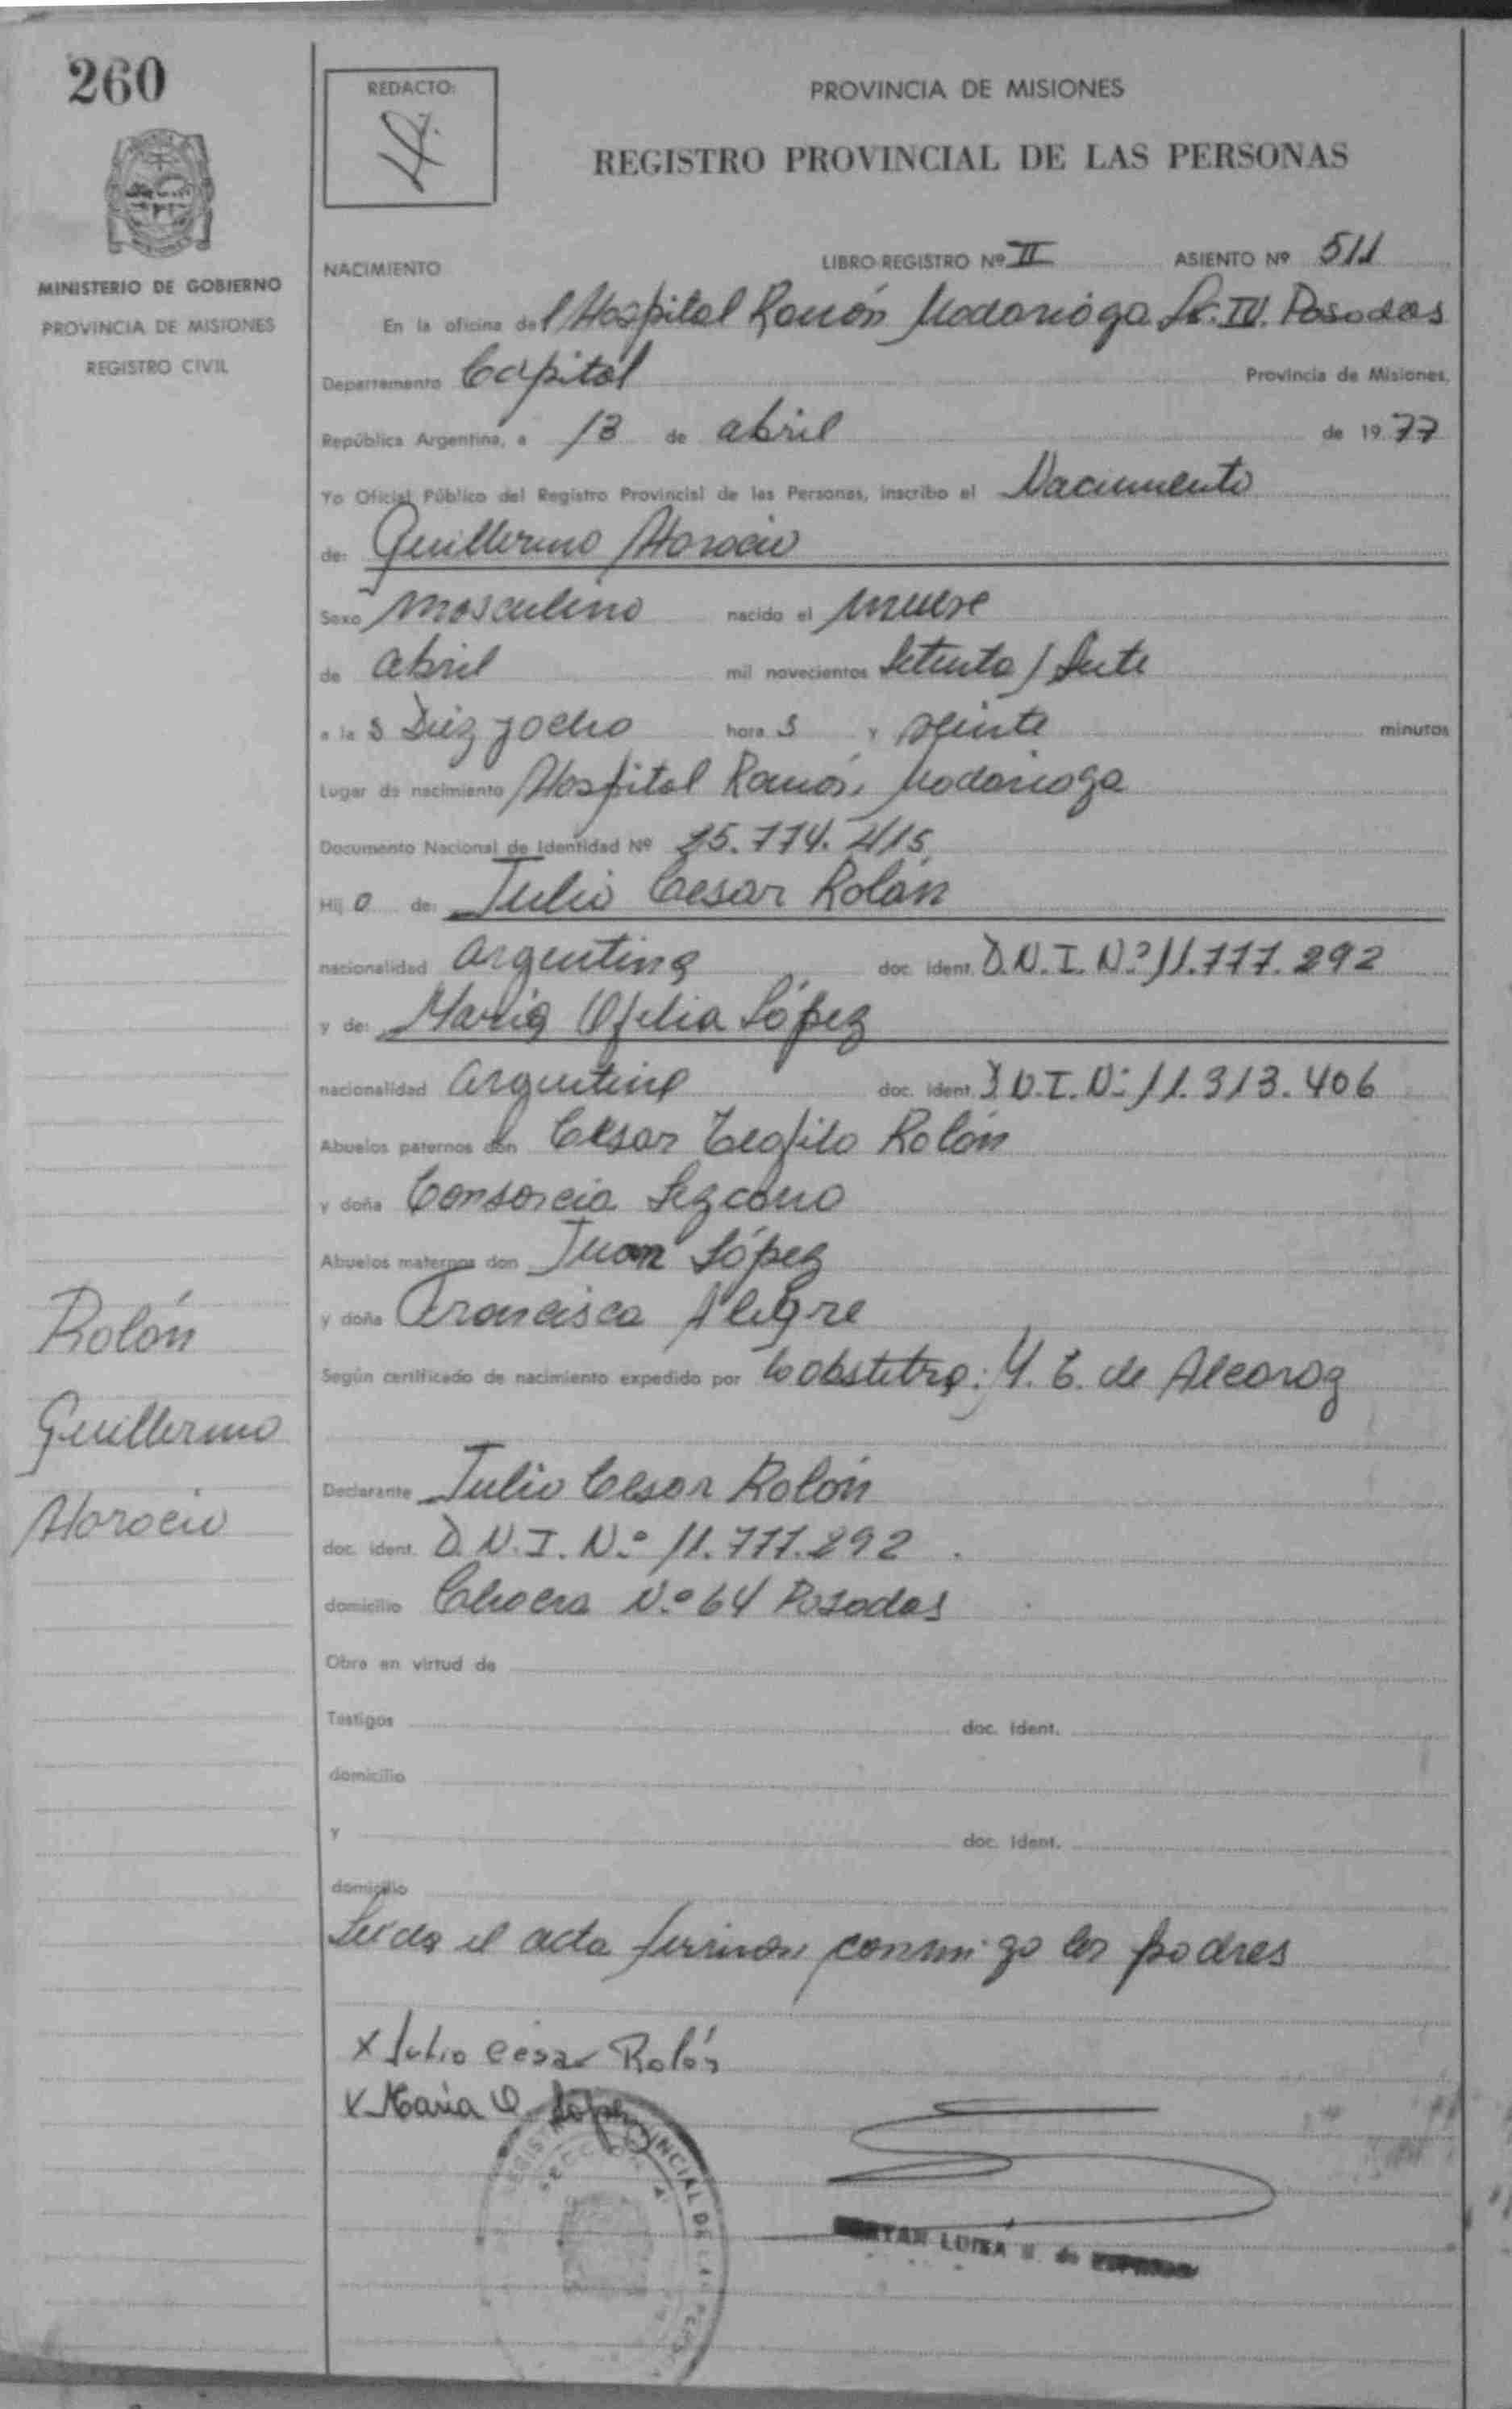 260
MINISTERIO DE GOBIERNO
PROVINCIA DE MISIONES
REGISTRO CIVIL
REDACTO:
PROVINCIA DE MISIONES
REGISTRO PROVINCIAL DE LAS PERSONAS
NACIMIENTO LIBRO REGISTRO Nº II ASIENTO Nº 511
En la oficina del Hospital Ramón Madariaga Sc. IV. Posadas
Departamento Capital Provincia de Misiones,
República Argentina, a 13 de abril de 1977
Yo Oficial Público del Registro Provincial de las Personas, inscribo el Nacimiento
de: Guillermo Horacio
Sexo masculino nacido el nueve
de abril mil novecientos Setenta y Siete
a las Diez y ocho horas y veinte minutos
Lugar de nacimiento Hospital Ramón Madariaga
Documento Nacional de Identidad Nº 25.774.215
Hijo de: Julio Cesar Rolón
nacionalidad argentina doc. ident. D.N.I. Nº 11.777.292
y de: María Ofelia López
nacionalidad argentina doc. ident. D.N.I. Nº 11.313.406
Abuelos paternos don Cesar Teofilo Rolón
y doña Consorcia Lezcano
Abuelos maternos don Juan López
y doña Francisca Alegre
Según certificado de nacimiento expedido por la obstetra: de Alcaraz
Declarante Julio Cesar Rolón
doc. ident. D.N.I. Nº 11.777.292.
domicilio Nº 64 Posadas
Obra en virtud de
Testigos doc. ident.
domicilio
y doc. ident.
domicilio
Leída el acta firman conmigo los padres
x Julio Cesar Rolón
x María O. López
Rolón
Guillermo
Horacio
LUISA